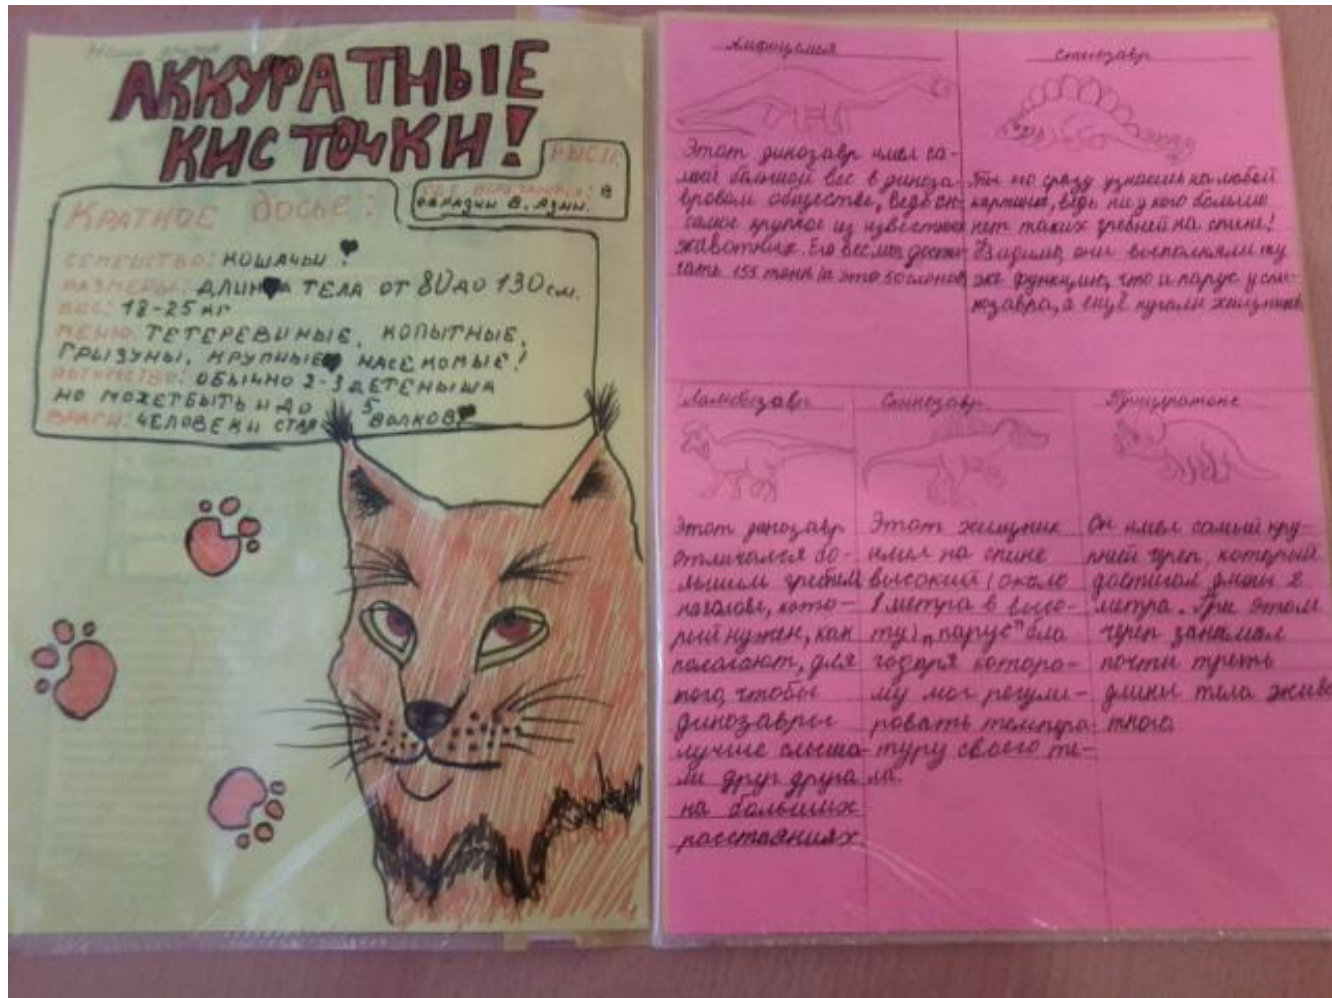 АККУРАТНЫЕ
КИСТОЧКИ!
РЫСЬ
В
Краткое досье:
СЕМЕЙСТВО: КОШАЧЬИ
РАЗМЕРЫ: ДЛИННА ТЕЛА ОТ 80 ДО 130 см.
ВЕС: 18-25 кг
МЕНЮ: ТЕТЕРЕВИНЫЕ, КОПЫТНЫЕ,
ГРЫЗУНЫ, КРУПНЫЕ НАСЕКОМЫЕ!
ПОТОМСТВО: ОБЫЧНО 2-3 ДЕТЕНЫША
НО МОЖЕТ БЫТЬ И ДО 5
ВРАГИ: ЧЕЛОВЕК И СТАЯ ВОЛКОВ
Амфицелия
Этот динозавр имел са-
мый большой вес в диноза-
вровом обществе, ведь он
самое крупное из известных
животных. Его вес мог дости-
гать 155 тонн (а это 50 слонов
Стегозавр
Ты его сразу узнаешь на любой
картинке, ведь ни у кого больше
нет таких гребней на спине!
Видимо, они выполняли ту
же функцию, что и парус у спи-
нозавра, а ещё пугали хищников
Ламбеозавр
Этот динозавр
отличался бо-
льшим гребнем
на голове, кото-
рый нужен, как
полагают, для
того, чтобы
динозавры
лучше слыша-
ли друг друга
на больших
расстояниях
Спинозавр
Этот хищник
имел на спине
высокий (около
1 метра в высо-
ту) "парус" бла
годаря которо-
му мог регули-
ровать темпера
туру своего те-
ла.
Трицератопс
Он имел самый кру-
пней череп, который
достигал длины 2
метра. При этом
череп занимал
почти треть
длины тела живо
тного.